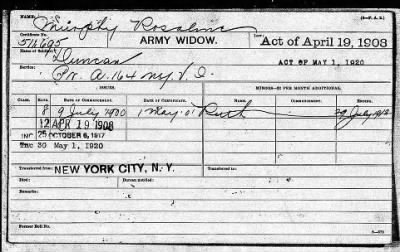 NAME: Murphy Rosalina (3-P. A. R.)
Certificate No. 514,695 ARMY WIDOW. Act of April 19, 1908
Name of Soldier: Duncan ACT OF MAY 1, 1920
Service: Pr. A. 164 N.Y. V. I.
ISSUES. MINORS—$2 PER MONTH ADDITIONAL.
CLASS. RATE. DATE OF COMMENCEMENT. DATE OF CERTIFICATE. NAME. DATE OF COMMENCEMENT. ENDING.
8 9 July 1900 1 May 01 Ruth 29 July 1912
12 APR 19 1908
INC 25 OCTOBER 6, 1917
INC 30 May 1, 1920
Transferred from: NEW YORK CITY, N. Y. Transferred to:
Died: Bureau notified:
Remarks:
Former Roll No.